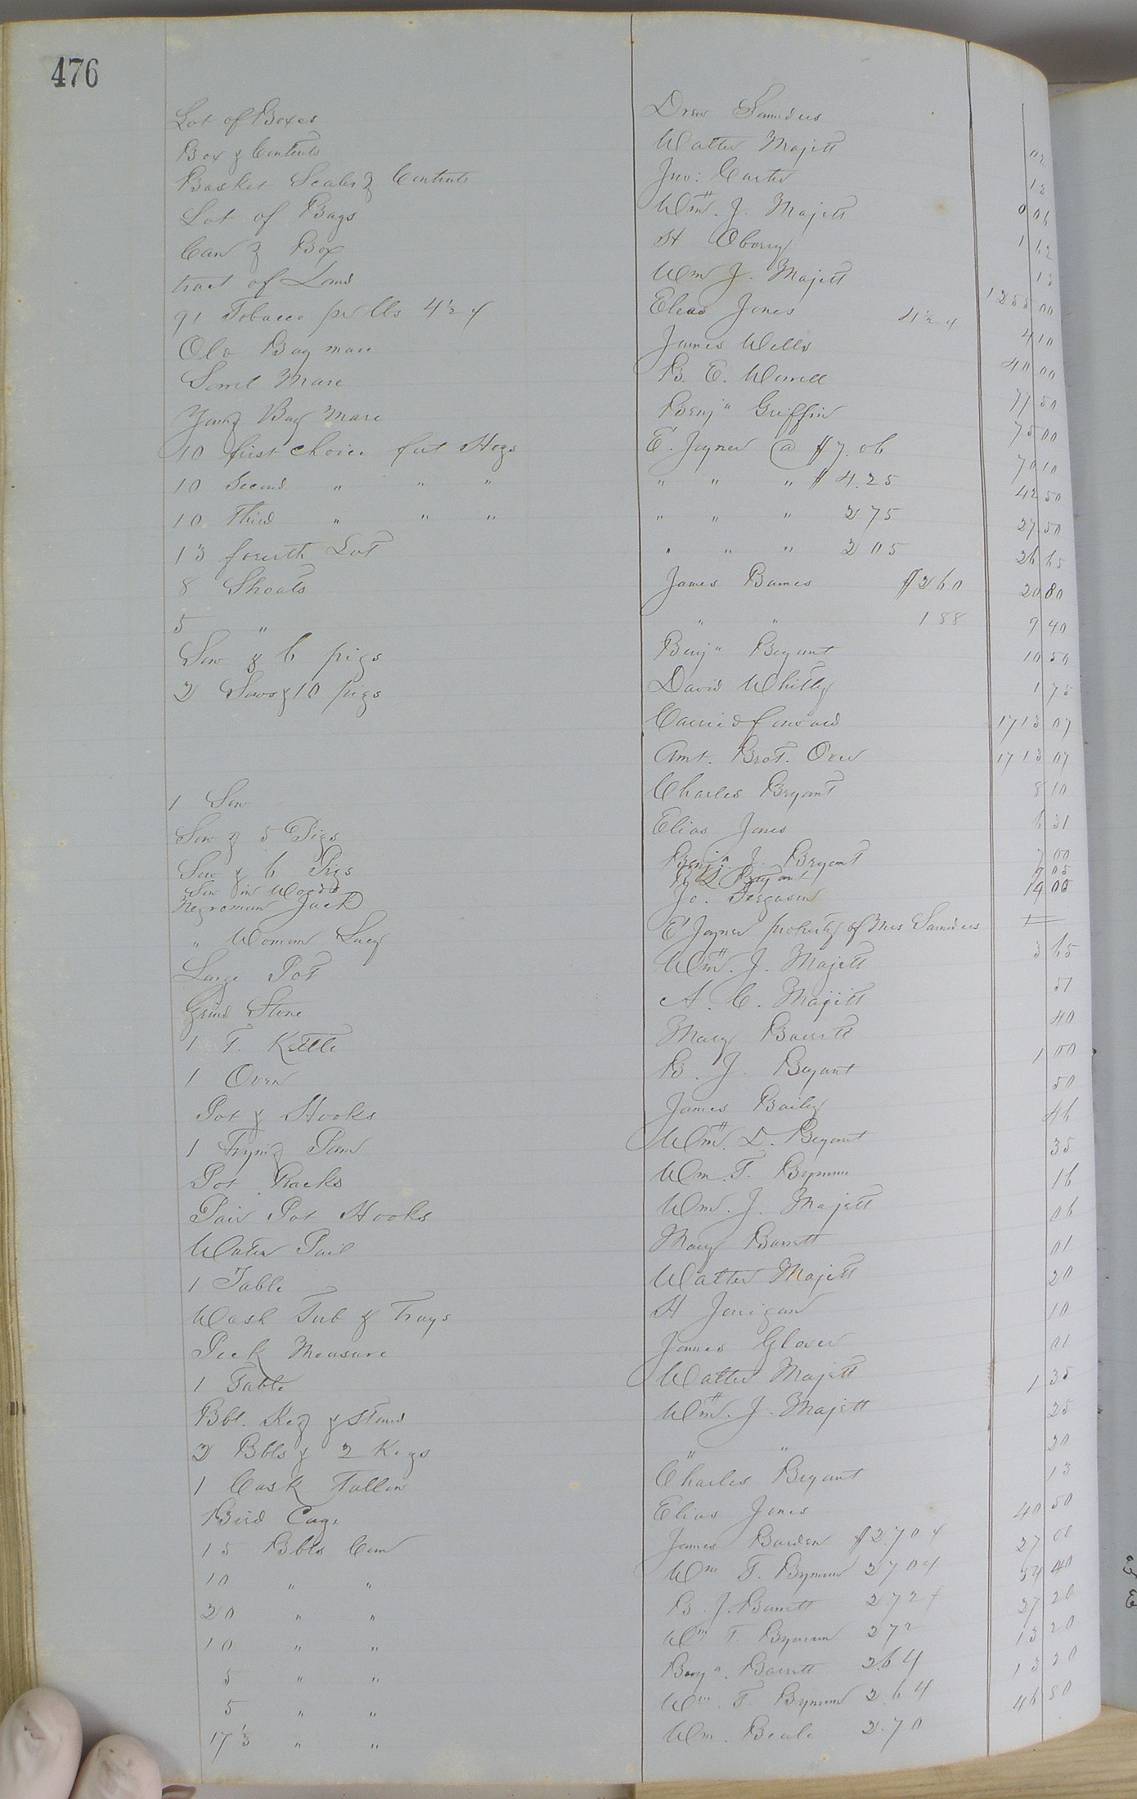 476
Lot of Boxes Drew Saunders 02
Box & Contents Walter Majett 12
Basket Scales & Contents Jno: Carter 0 06
Lot of Bags Wm. J. Majett 1 62
Can & Box H Oberry 13
tract of Land Wm J. Majett 1255 00
91 Tobacco pr lbs 4½ ¢ Elias Jones 4½ ¢ 4 10
Old Bay mare James Wells 40 00
Sorrel Mare B. E. Worrell 77 50
Young Bay Mare Benjn Griffin 75 00
10 first choice fat Hogs E. Joyner @ $7.06 70 10
10 Second " " " " " " $4.25 42 50
10 Third " " " " " " 2 75 27 50
13 fourth Lot " " " 2 05 26 65
8 Shoats James Barnes $2 60 20 80
5 " " " 1 88 9 40
Sow & 6 pigs Benjn Bryant 10 50
2 Sows & 10 pigs David Whitly 1 75
Carried forward 1713 07
Amt. Brot. Over 1713 07
1 Sow Charles Bryant 8 10
Sow & 5 Pigs Elias Jones 6 31
Sow & 6 Pigs Benjn J. Bryant 7 00
Sow in Woods Bryant 9 05
Negroman Jack Jo. Ferguson 19 00
" Woman Lucy E Joyner property of Mrs Saunders
Large Pot Wm. J. Majett 3 65
Grind Stone A. C. Majett 51
1 T. Kettle Mary Barrett 40
1 Oven B. J. Bryant 1 00
Pot & Hooks James Baily 50
1 Frying Pan Wm. D. Bryant 46
Pot Racks Wm. T. Bynum 35
Pair Pot Hooks Wm. J. Majett 16
Water Pail Mary Barrett 06
1 Table Walter Majett 01
Wash Tub & Trays H Jernigan 20
Peck Measure James Glover 10
1 Table Walter Majett 01
Bbl. Keg & Stand Wm. J. Majett 1 35
2 Bbls & 2 Kegs " " 25
1 Cask Charles Bryant 20
Bird Cage Elias Jones 13
15 Bbls Corn James Barden $2.70 ¢ 40 50
10 " " Wm T. Bynum 2 70 ¢ 27 00
20 " " B. J. Barrett 2 72 ¢ 54 40
10 " " Wm T. Bynum 2 72 27 20
5 " " Benjn. Barrett 2.64 13 20
5 " " Wm. T. Bynum 2.64 13 20
17⅓ " " Wm. Beale 2.70 46 80